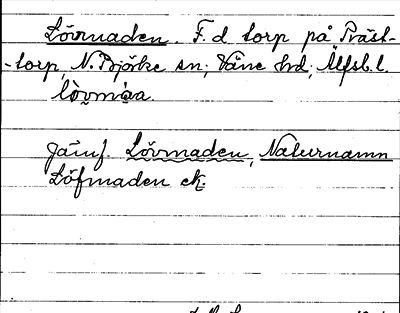 Lövmaden. F. d torp på Präst-
-torp, N. Björke sn; Väne hd; Älfsb. l.
lòvmàa.
Jämf. Lövmaden, Naturnamn
Löfmaden ek.